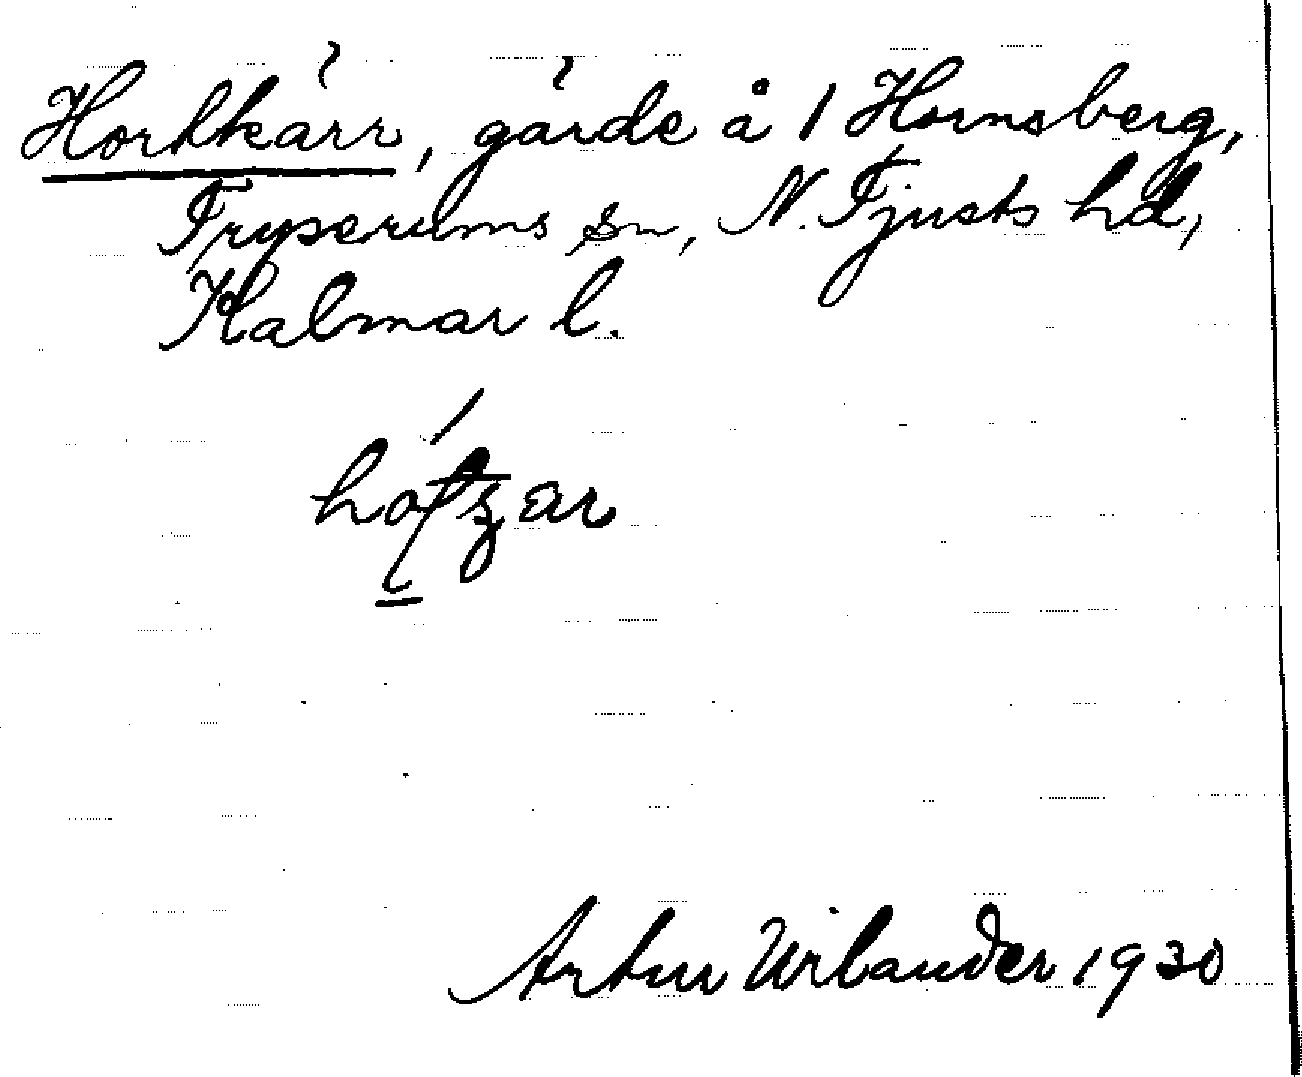 Horkkärr, gärde å 1 Hornsberg,
Tryserums sn, N. Tjusts hd,
Kalmar l.
Artur Wilander 1930